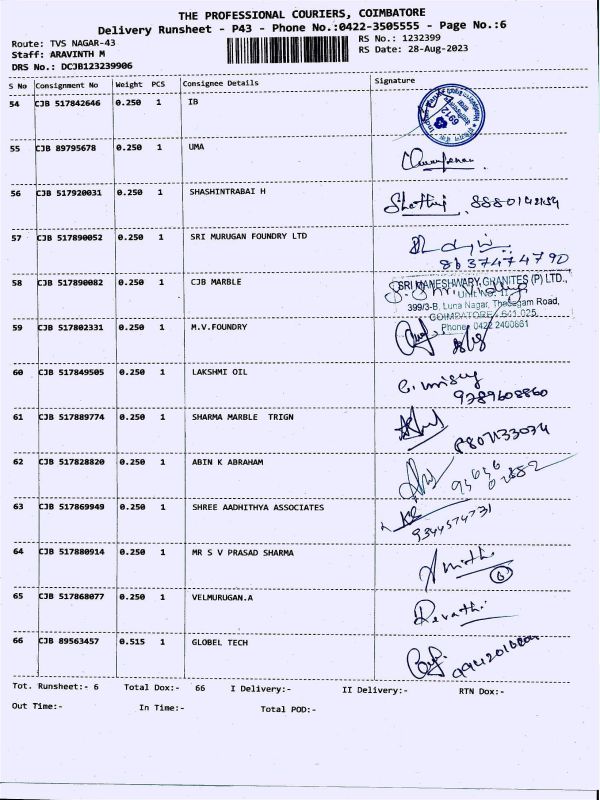 THE PROFESSIONAL COURIERS, COIMBATORE
Delivery Runsheet - P43 - Phone No.:0422-3505555 - Page No.:6
Route: TVS NAGAR-43 RS No.: 1232399
Staff: ARAVINTH M RS Date: 28-Aug-2023
DRS No.: DCJB123239906
S No Consignment No Weight PCS Consignee Details Signature
54 CJB 517842646 0.250 1 IB
55 CJB 89795678 0.250 1 UMA
56 CJB 517920031 0.250 1 SHASHINTRABAI H
57 CJB 517890052 0.250 1 SRI MURUGAN FOUNDRY LTD
8637474790
58 CJB 517890082 0.250 1 CJB MARBLE
SRI MANESHWARY GRANITES (P) LTD.,
399/3-B, Luna Nagar, Thadagam Road,
COIMBATORE - 641 025.
Phone: 0422 2400661
59 CJB 517802331 0.250 1 M.V.FOUNDRY
60 CJB 517849505 0.250 1 LAKSHMI OIL
9789608860
61 CJB 517889774 0.250 1 SHARMA MARBLE TRIGN
8807133034
62 CJB 517828820 0.250 1 ABIN K ABRAHAM
63 CJB 517869949 0.250 1 SHREE AADHITHYA ASSOCIATES
9344574731
64 CJB 517880914 0.250 1 MR S V PRASAD SHARMA
65 CJB 517868077 0.250 1 VELMURUGAN.A
Revathi
66 CJB 89563457 0.515 1 GLOBEL TECH
Tot. Runsheet:- 6 Total Dox:- 66 I Delivery:- II Delivery:- RTN Dox:-
Out Time:- In Time:- Total POD:-